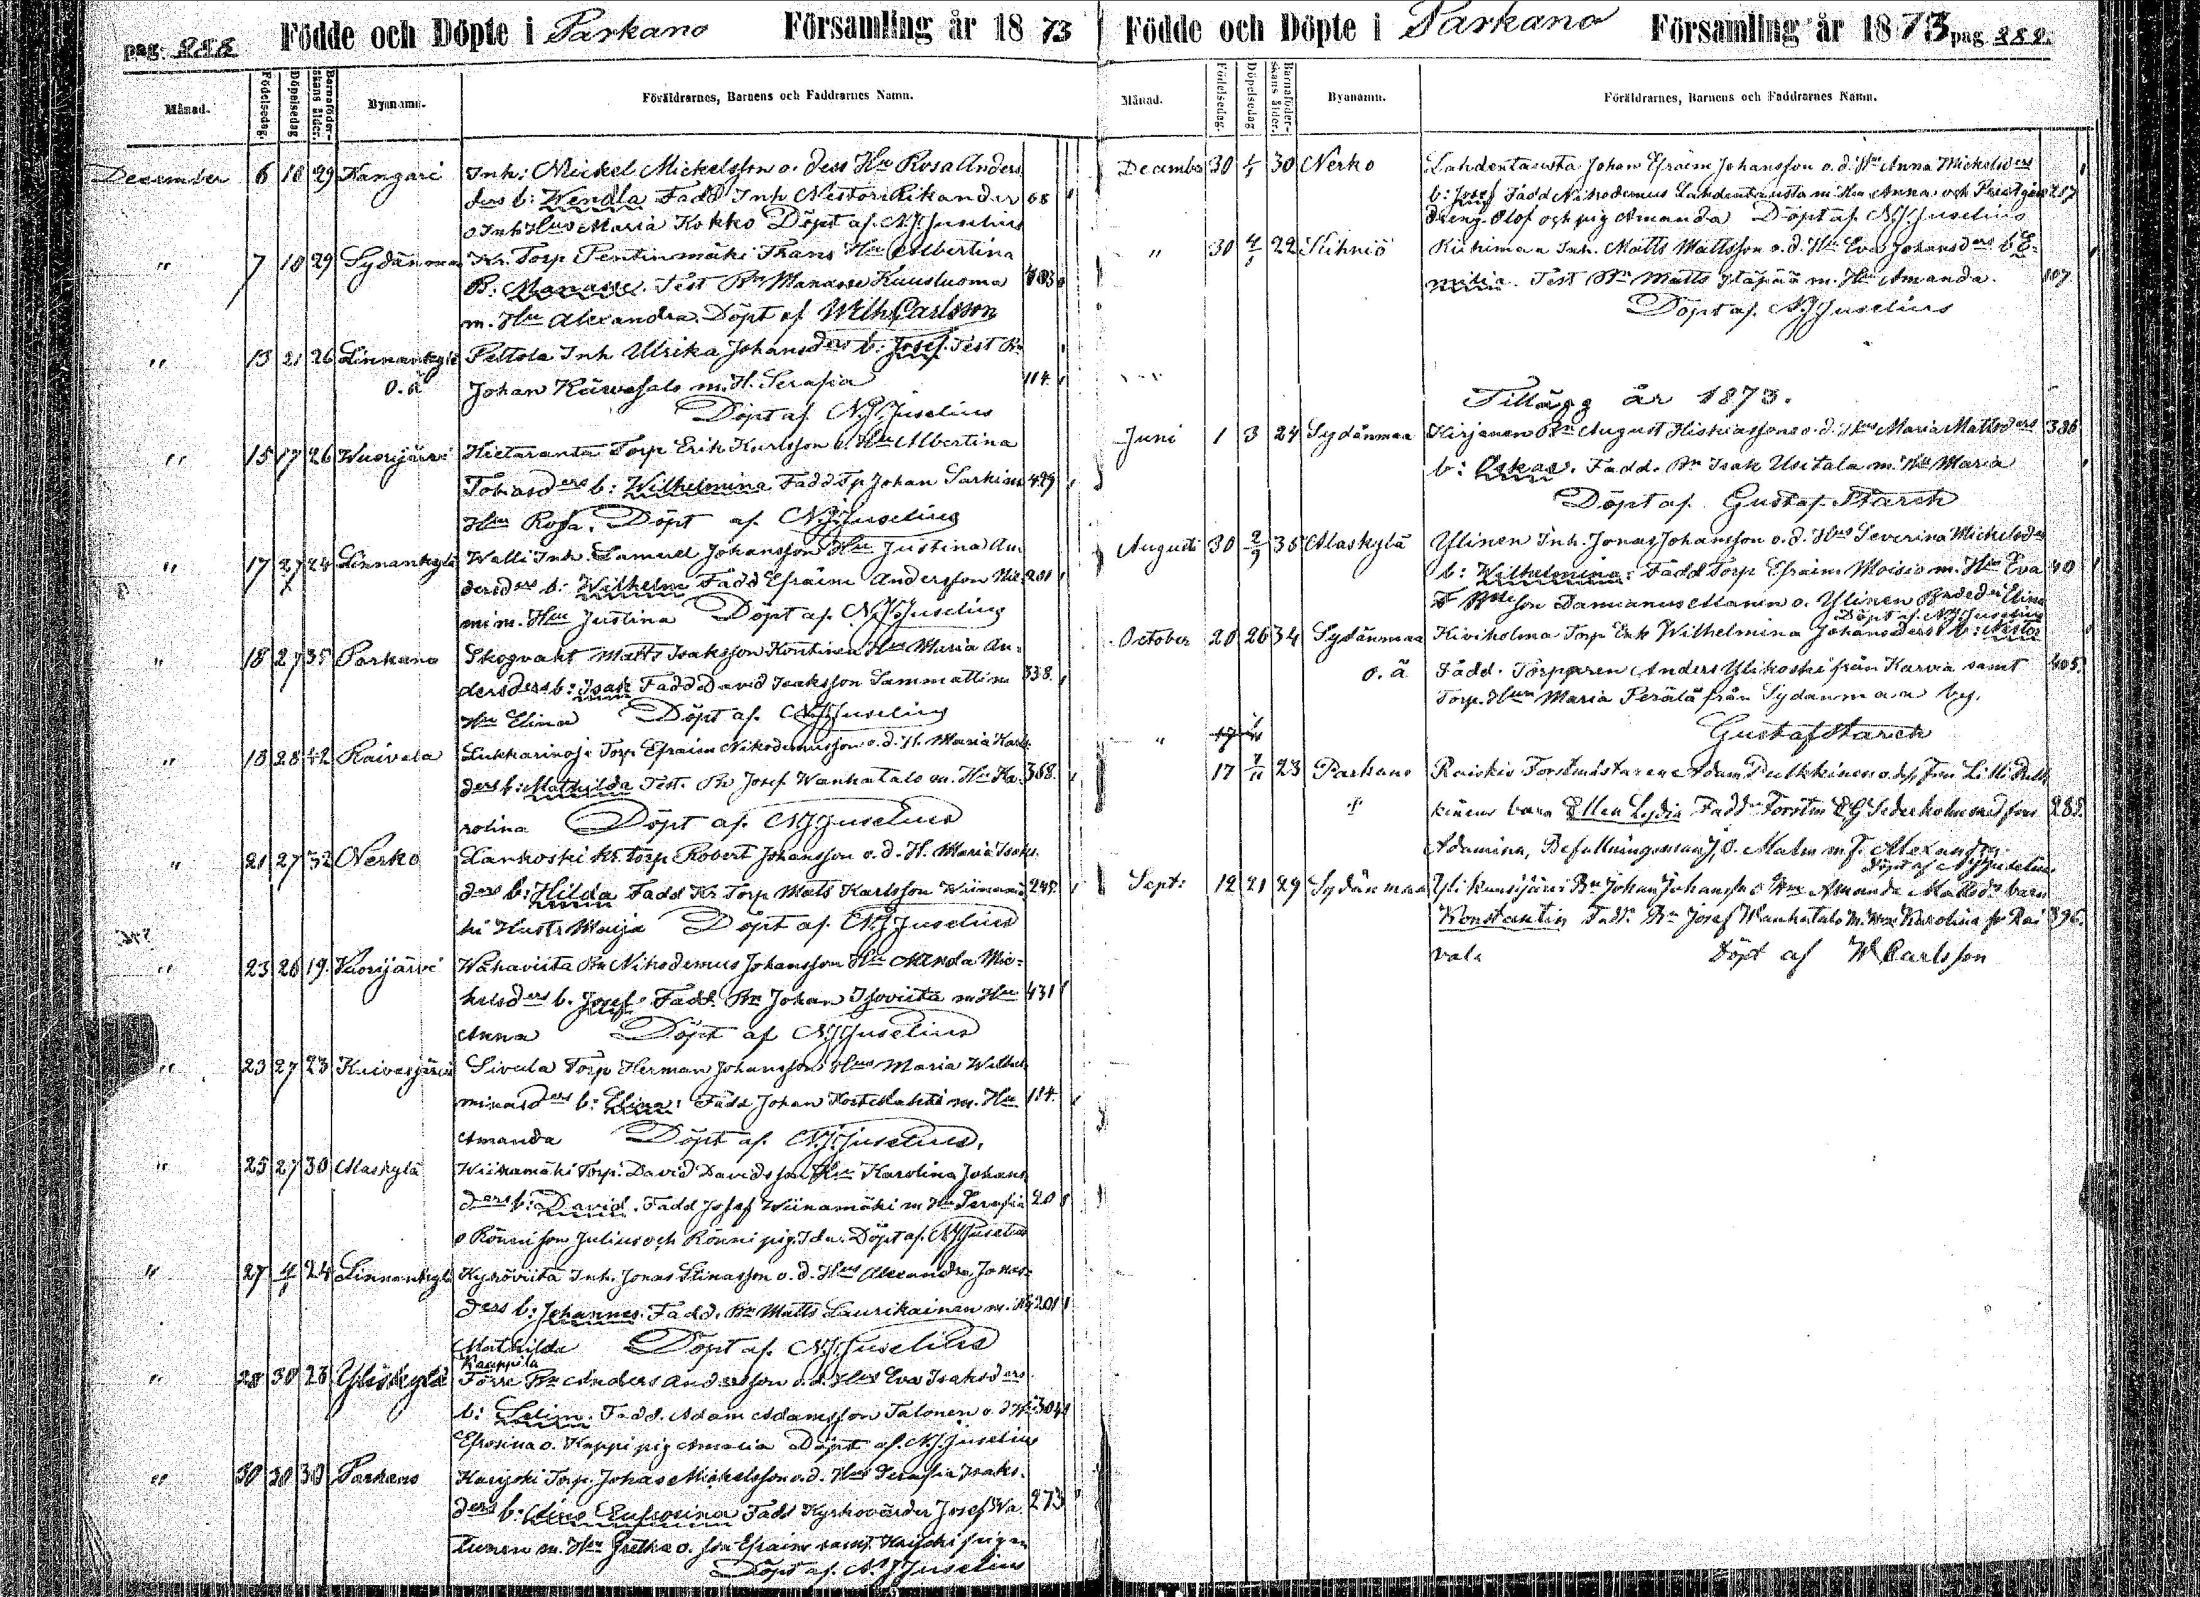 pag. 288. Födde och Döpte i Parkano Församling år 1873
Månad. Födelsedag. Döpelsedag Barnaföderskans ålder. Bynamn. Föräldrarnes, Barnens och Faddrarnes Namn.
December 6 18 29 Kangari Inh: Mickel Mickelsson o. dess Hu Rosa Anders
ders b: Wendla Fadd Inh Nestori Rikander 68
o Inh Hus Maria Kokko Döpt af. N.J. Juselius
" 7 18 29 Sydänmaa Kr. Torp Pentinmäki Frans Hu Albertina
B: Manasse. Test Bn Manasse Kuusluoma 403
m. Hu Alexandra. Döpt af Wilh. Carlsson
" 13 21 26 Linnankylä Peltola Inh Ulrika Johansders b: Josef. Test Bn
o.ä Johan Käwesalo m. H. Serafia 114.
Döpt af N.J. Juselius
" 15 17 26 Wuorijärvi Hietaranta Torp Erik Karlsson o. Hu Albertina
Tobiasders b: Wilhelmina Fadd Tp Johan Sarkinen 429
Hu Rosa. Döpt af. N.J. Juselius
" 17 27 24 Linnankylä Walli Inh. Samuel Johansson Hu Justina An
dersders b: Wilhelm Fadd Efraim Andersson 201
m. Hu Justina Döpt af. N.J. Juselius
" 18 27 35 Parkano Skogvakt Matts Isaksson Kontinen Hu Maria An-
dersders b: Isak Fadd David Isaksson Sammatti m 338.
Hu Elina Döpt af. N.J. Juselius
" 18 28 42 Raivala Lukkarinoja Torp Efraim Nikodemusson o. d. H. Maria Karls
ders b: Mathilda Test. Bn Josef Wanhatalo m. Hu Ka- 368.
rolina Döpt af. N.J. Juselius
" 21 27 32 Nerko Lankoski Kr. torp Robert Johansson o. d. H. Maria Isaks.
ders b: Hilda Fadd Kr. Torp Mats Karlsson Wiinamä 245.
ki Hustr Maija Döpt af. N.J. Juselius
" 23 26 19. Vuorijärvi Wahaviita Bn Nikodemus Johansson Hu Manda Mic-
kelsders b. Josef Fadd. Bn Johan Isoviita m Hu 431
Anna Döpt af N.J. Juselius
" 23 27 23 Kuivasjärvi Sivula Torp Herman Johansson Hus Maria Wilhel
minasders b: Elina. Fadd Johan m. Hu 184.
Amanda Döpt af. N.J. Juselius.
" 25 27 30 Alaskylä Wiinamäki Torp. David Davidsson Hu Karolina Johans
ders b: David. Fadd Josef Wiinamäki m Hu Serafia 20
o Rönni son Julius och Rönni pig. Ida. Döpt af. N.J. Juselius
" 27 4/1 24 Linnankylä Kyröviita Inh. Jonas Stinasson o. d. Hus Alexandra Jonas-
ders b: Johannes. Fadd. Bn Matts Laurikainen m. H 201
Mathilda Döpt af. N.J. Juselius
Kauppila
" 28 30 23 Yliskylä Törre Bn Anders Andersson o. d. Hus Eva Isaksders
b: Selim. Fadd. Adam Adamsson Talonen o. d H 304
Efrosina o. Kappi pig Amalia Döpt af. N.J. Juselius
" 30 30 30 Parkano Karijoki Torp. Johas Mickelsson o. d. Hus Serafia Isaks.
ders b: Aina Eufrosina Fadd Kyrkovärden Josef Wa 273
m. Hu Gretha o. son Efraim samt
Döpt af. N.J. Juselius
Födde och Döpte i Parkano Församling år 1873 pag. 289.
Månad. Födelsedag. Döpelsedag Barnaföderskans ålder. Bynamn. Föräldrarnes, Barnens och Faddrarnes Namn.
December 30 1/1 30 Nerko Lahdentausta Johan Efraim Johansson o. d. Hu Anna Mickelsders
b: Josef Fadd Nikodemus Lahdentausta m. Hu Anna och 217
dräng Olof och pig Amanda Döpt af. N.J. Juselius
" 30 4/1 22 Kihniö Riihimaa Inh. Matts Mattsson o. d. Hu Eva Johansders b E-
milia. Test Bn Matts Itäpää m. Hu Amanda. 107.
Döpt af. N.J. Juselius
Tillägg år 1873.
Juni 1 3 24 Sydänmaa Kirjanen Bn August Hiskiasson o. d. Hus Maria Mattsders 386
b: Oskar. Fadd. Bn Isak Usitalo m. Hu Maria
Döpt af. Gustaf Starck
Augusti 30 2/9 35 Alaskylä Ylinen Inh. Jonas Johansson o. d. Hus Severina Mickelsders
b: Wilhelmina: Fadd Torp Efraim Moisio m. Hu Eva 40
son Damianus Manen o. Ylinen
Döpt af. N.J. Juselius
October 20 26 34 Sydänmaa Kiviholma Torp Enk Wilhelmina Johansders b: Nestor
o. ä Fadd. Torpparen Anders Ylikoski från Karvia samt 405.
Torp. Hun Maria Perälä från Sydanmaa by.
Gustaf Starck
" 17 7/11 23 Parkano Raiskio Forstmästaren Adam Pulkkinen o. dss Fru Lilli Pulk
" kinens barn Ellen Lydia Fadd Forstm E G Sederholm med fru 285.
Adamina, Befallningsman J. O. Malm m. f. Alexandra.
Döpt af N J Juselius
Sept: 12 21 29 Sydänmaa Ylikuusijärvi Bn Johan Johansson o Hu Amanda Mattsdr barn
Konstantin Fadd. Bn Josef Wanhatalo m. Hu Karolina fr Rai 396.
vala Döpt af W Carlsson